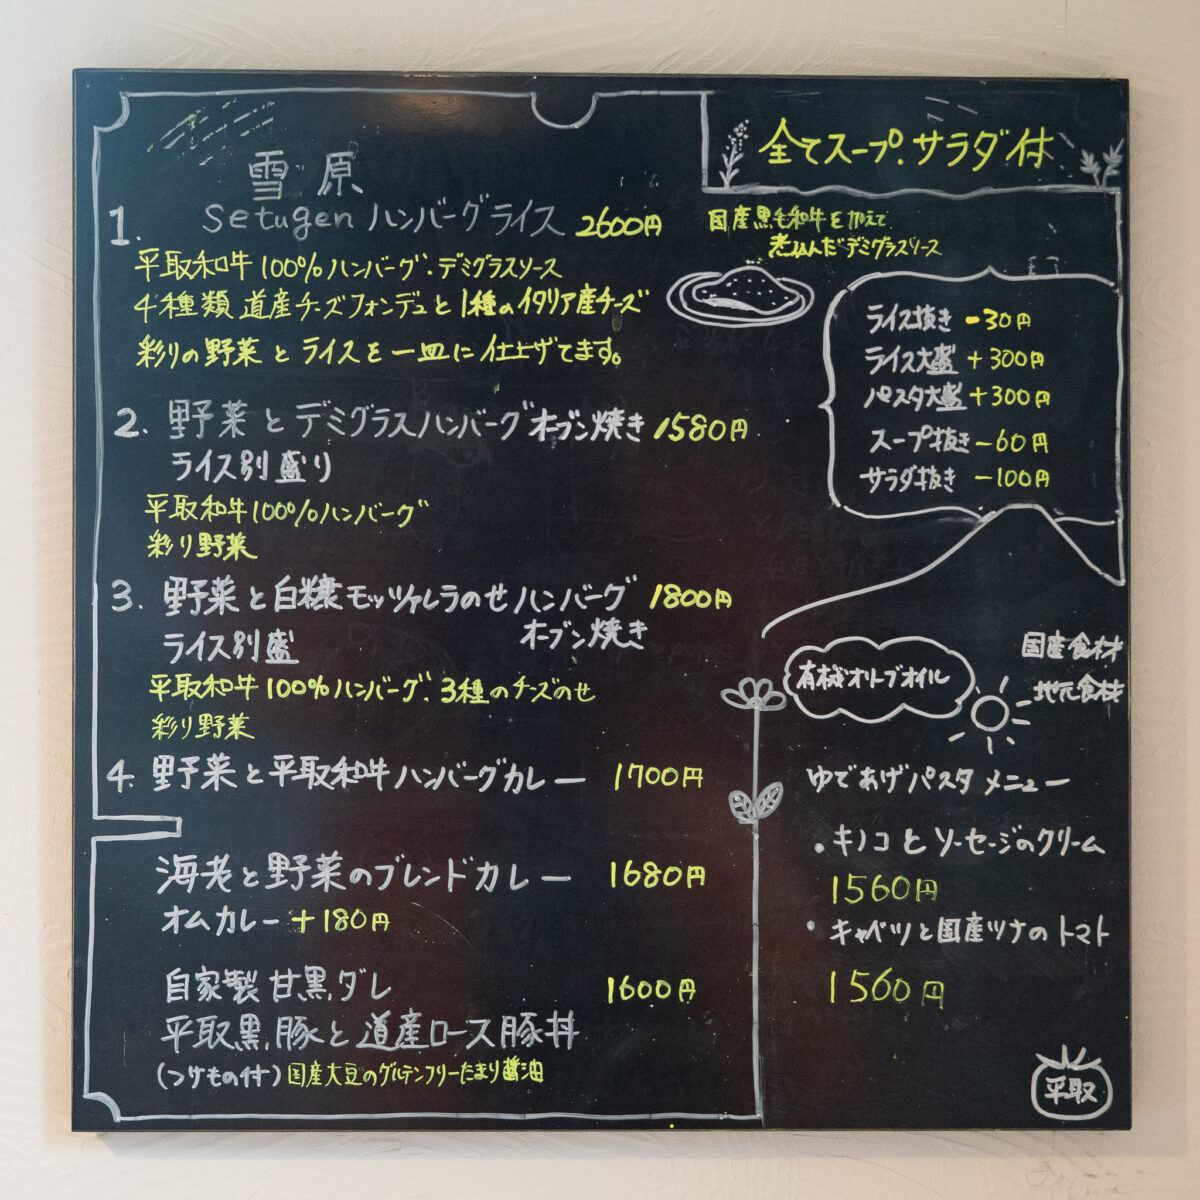 全てスープ.サラダ付
雪原
1. Setugen ハンバーグライス 2600円
国産黒毛和牛を加えて
煮込んだデミグラスソース
平取和牛100%ハンバーグ.デミグラスソース
4種類道産チーズフォンデュと1種のイタリア産チーズ
彩りの野菜とライスを一皿に仕上げてます。
ライス抜き -30円
ライス大盛 +300円
パスタ大盛 +300円
スープ抜き -60円
サラダ抜き -100円
2. 野菜とデミグラスハンバーグオーブン焼き 1580円
ライス別盛り
平取和牛100%ハンバーグ
彩り野菜
3. 野菜と白糠モッツァレラのせハンバーグ 1800円
オーブン焼き
ライス別盛
平取和牛100%ハンバーグ.3種のチーズのせ
彩り野菜
4. 野菜と平取和牛ハンバーグカレー 1700円
海老と野菜のブレンドカレー 1680円
オムカレー +180円
自家製甘黒ダレ 1600円
平取黒豚と道産ロース豚丼
(つけもの付)国産大豆のグルテンフリーたまり醤油
国産食材
地元食材
有機オリーブオイル
ゆであげパスタメニュー
・キノコとソーセージのクリーム
1560円
・キャベツと国産ツナのトマト
1560円
平取